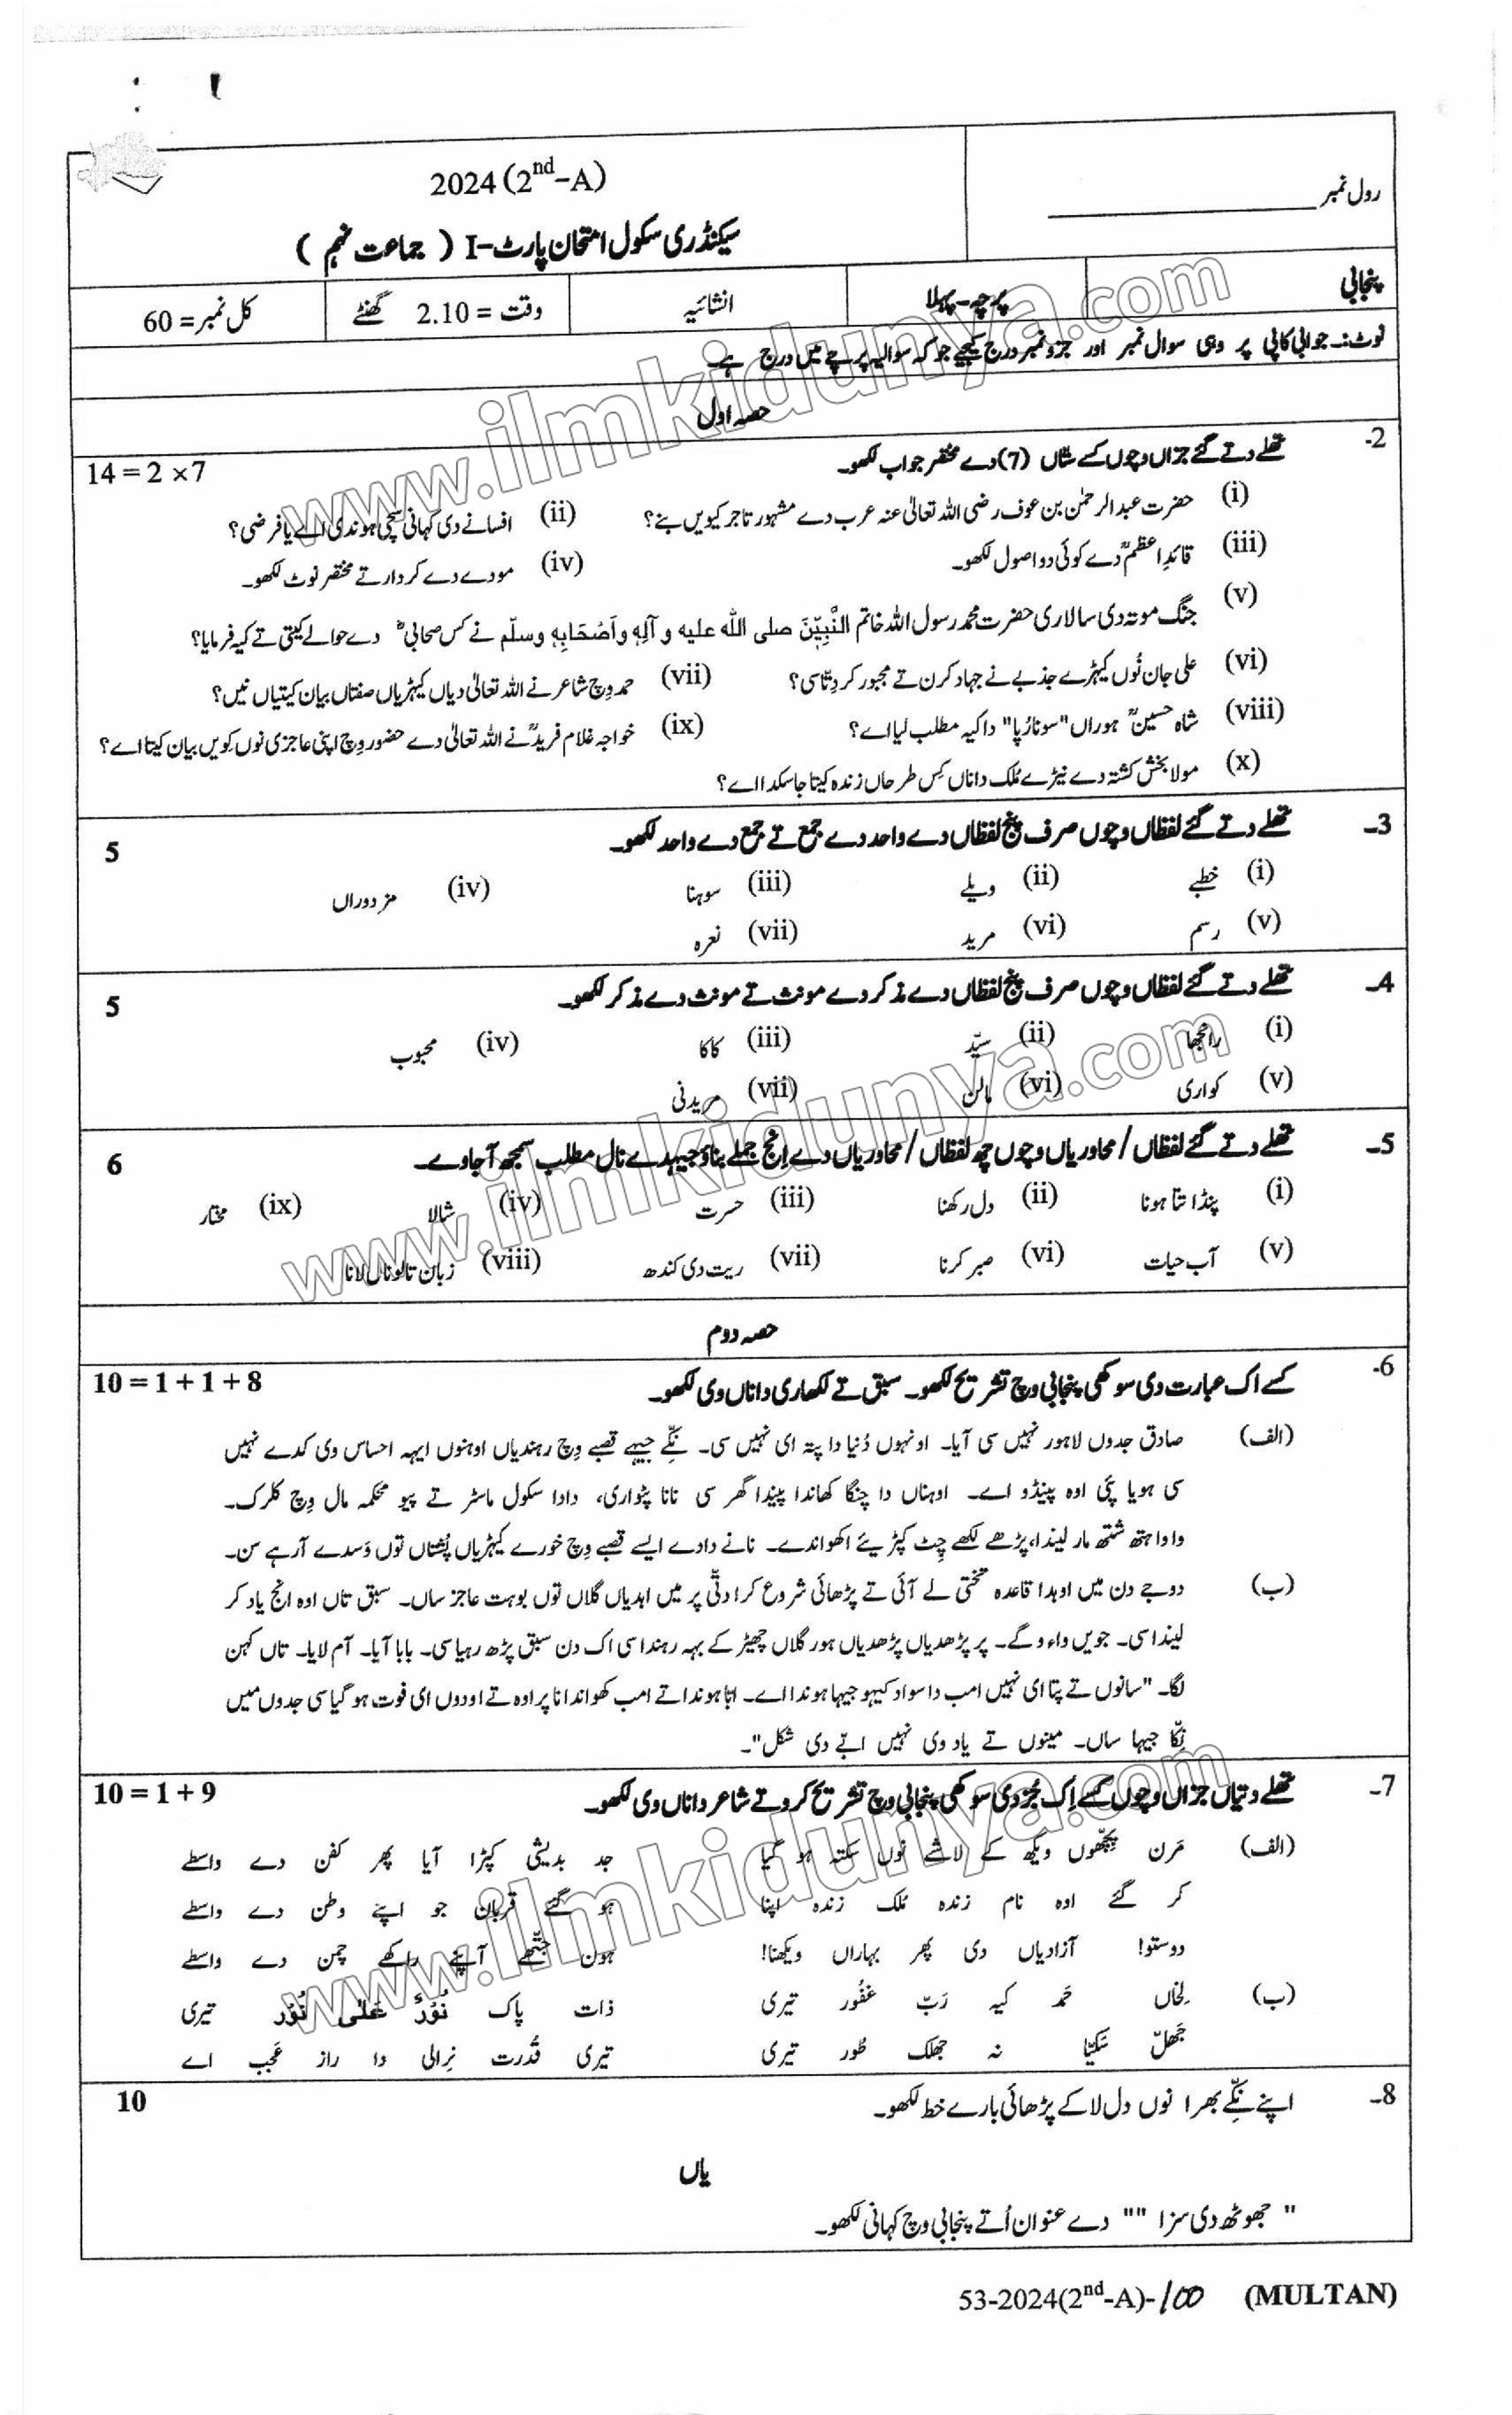 2024 (2nd-A)
رول نمبر
سیکنڈری سکول امتحان پارٹ-I ( جماعت نہم )
پنجابی پرچہ-پہلا انشائیہ وقت = 2.10 گھنٹے کل نمبر = 60
نوٹ:۔ جوابی کاپی پر وہی سوال نمبر اور جزو نمبر درج کیجیے جو کہ سوالیہ پرچے میں درج ہے۔
حصہ اول
2- تھلے دتے گئے جزاں وچوں کسے ستاں (7) دے مختصر جواب لکھو۔ 14 = 2 × 7
(i) حضرت عبدالرحمٰن بن عوف رضی اللہ تعالیٰ عنہ عرب دے مشہور تاجر کیویں بنے؟ (ii) افسانے دی کہانی سچی ہوندی اے یا فرضی؟
(iii) قائدِاعظمؒ دے کوئی دو اصول لکھو۔ (iv) مودے دے کردار تے مختصر نوٹ لکھو۔
(v) جنگ موتہ دی سالاری حضرت محمد رسول اللہ خاتم النَّبِیّٖنَ صلی اللہ علیہ و آلِہٖ واَصْحَابِہٖ وسلّم نے کس صحابیؓ دے حوالے کیتی تے کیہ فرمایا؟
(vi) علی جان نُوں کیہڑے جذبے نے جہاد کرن تے مجبور کر دِتّا سی؟ (vii) حمد وِچ شاعر نے اللہ تعالیٰ دیاں کیہڑیاں صفتاں بیان کیتیاں نیں؟
(viii) شاہ حسینؒ ہوراں "سونا رُپا" دا کیہ مطلب لیا اے؟ (ix) خواجہ غلام فریدؒ نے اللہ تعالیٰ دے حضور وِچ اپنی عاجزی نوں کِویں بیان کیتا اے؟
(x) مولا بخش کشتہ دے نیڑے مُلک دا ناں کِس طرحاں زندہ کیتا جا سکدا اے؟
3- تھلے دتے گئے لفظاں وچوں صرف پنج لفظاں دے واحد دے جمع تے جمع دے واحد لکھو۔ 5
(i) خطبے (ii) ویلے (iii) سوہنا (iv) مزدوراں
(v) رسم (vi) مرید (vii) نعرہ
4- تھلے دتے گئے لفظاں وچوں صرف پنج لفظاں دے مذکر دے مونث تے مونث دے مذکر لکھو۔ 5
(i) رانجھا (ii) سیّد (iii) کاکا (iv) محبوب
(v) کواری (vi) مالن (vii) مریدنی
5- تھلے دتے گئے لفظاں / محاوریاں وچوں چھ لفظاں / محاوریاں دے اِنج جملے بناؤ جیہدے نال مطلب سمجھ آ جاوے۔ 6
(i) پنڈا تتا ہونا (ii) دل رکھنا (iii) حسرت (iv) شالا (ix) مختار
(v) آب حیات (vi) صبر کرنا (vii) ریت دی کندھ (viii) زبان تالو نال لانا
حصہ دوم
6- کسے اک عبارت دی سوکھی پنجابی وچ تشریح لکھو۔ سبق تے لکھاری دا ناں وی لکھو۔ 10 = 1 + 1 + 8
(الف) صادق جدوں لاہور نہیں سی آیا۔ اونہوں دُنیا دا پتہ ای نہیں سی۔ نِکّے جیہے قصبے وِچ رہندیاں اوہنوں ایہہ احساس وی کدے نہیں
سی ہویا پئی اوہ پینڈو اے۔ اوہناں دا چنگا کھاندا پیندا گھر سی نانا پٹواری، دادا سکول ماسٹر تے پیو محکمہ مال وِچ کلرک۔
واوا ہتھ شتھ مار لیندا، پڑھے لکھے چِٹ کپڑیئے اکھواندے۔ نانے دادے ایسے قصبے وِچ خورے کیہڑیاں پُشتاں توں وَسدے آرہے سن۔
(ب) دوجے دن میں اوہدا قاعدہ تختی لے آئی تے پڑھائی شروع کرا دتّی پر میں اہدیاں گلاں توں بوہت عاجز ساں۔ سبق تاں اوہ انج یاد کر
لیندا سی۔ جویں واء وگے۔ پر پڑھدیاں پڑھدیاں ہور گلاں چھیڑ کے بہہ رہندا سی اک دن سبق پڑھ رہیا سی۔ بابا آیا۔ آم لایا۔ تاں کہن
لگا۔ "سانوں تے پتا ای نہیں امب دا سواد کیہو جیہا ہوندا اے۔ ابّا ہوندا تے امب کھواندا نا پر اوہ تے اودوں ای فوت ہو گیا سی جدوں میں
نِکّا جیہا ساں۔ مینوں تے یاد وی نہیں ابّے دی شکل"۔
7- تھلے دتیاں جزاں وچوں کسے اِک جُز دی سوکھی پنجابی وچ تشریح کرو تے شاعر دا ناں وی لکھو۔ 10 = 1 + 9
(الف) مَرن پِچھّوں ویکھ کے لاشے نوں سکتہ ہو گیا جد بدیشی کپڑا آیا پھر کفن دے واسطے
کر گئے اوہ نام زندہ مُلک زندہ اپنا ہو گئے قربان جو اپنے وطن دے واسطے
دوستو! آزادیاں دی پھر بہاراں ویکھنا! ہون جتھّے آپنے راکھے چمن دے واسطے
(ب) لِخاں حمد کیہ رَبّ غفُور تیری ذات پاک نُوْرٌ عَلٰی نُوْر تیری
جَھلّ سَکیّا نہ جھلک طُور تیری تیری قُدرت نِرالی دا راز عجب اے
8- اپنے نِکّے بھرا نوں دل لا کے پڑھائی بارے خط لکھو۔ 10
یاں
" جھوٹھ دی سزا "" دے عنوان اُتے پنجابی وچ کہانی لکھو۔
53-2024(2nd-A)-100 (MULTAN)
www.ilmkidunya.com
www.ilmkidunya.com
www.ilmkidunya.com